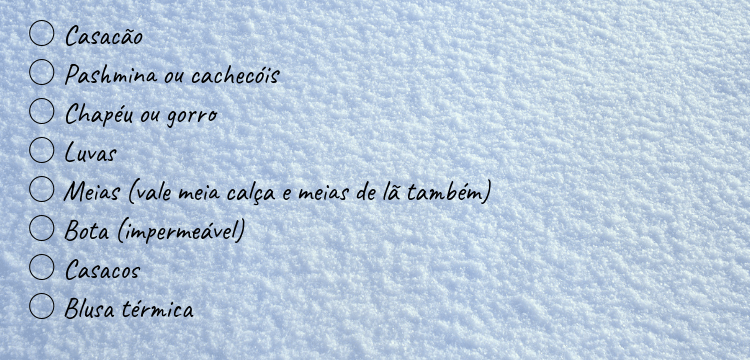 Casacão
Pashmina ou cachecóis
Chapéu ou gorro
Luvas
Meias (vale meia calça e meias de lã também)
Bota (impermeável)
Casacos
Blusa térmica